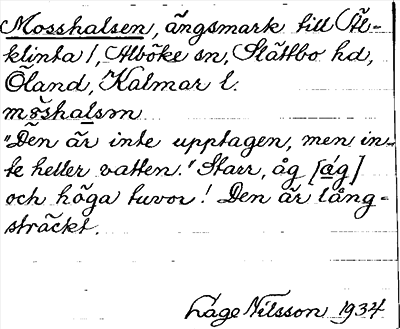 Mosshalsen, ängsmark till Äl-
klinta /, Alböke sn, Slättbo hd,
Öland, Kalmar l.
mơshalsm
"Den är inte upptagen, men in-
te heller vatten." Starr, åg [ág]
och höga tuvor! Den är lång-
sträckt.
Låge Nilsson 1934